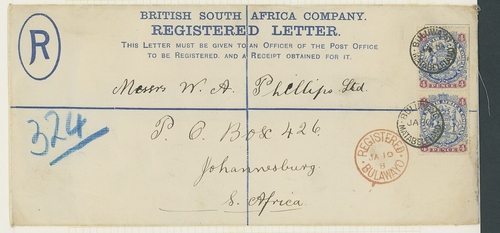 BRITISH SOUTH AFRICA COMPANY.
REGISTERED LETTER.
THIS LETTER MUST BE GIVEN TO AN OFFICER OF THE POST OFFICE
TO BE REGISTERED, AND A RECEIPT OBTAINED FOR IT.
R
Messrs W. A. Phillips Ltd.
324
P. O. Box 426
Johannesburg
S. Africa
REGISTERED
JA 10
8
BULAWAYO
4 PENCE 4
4 4